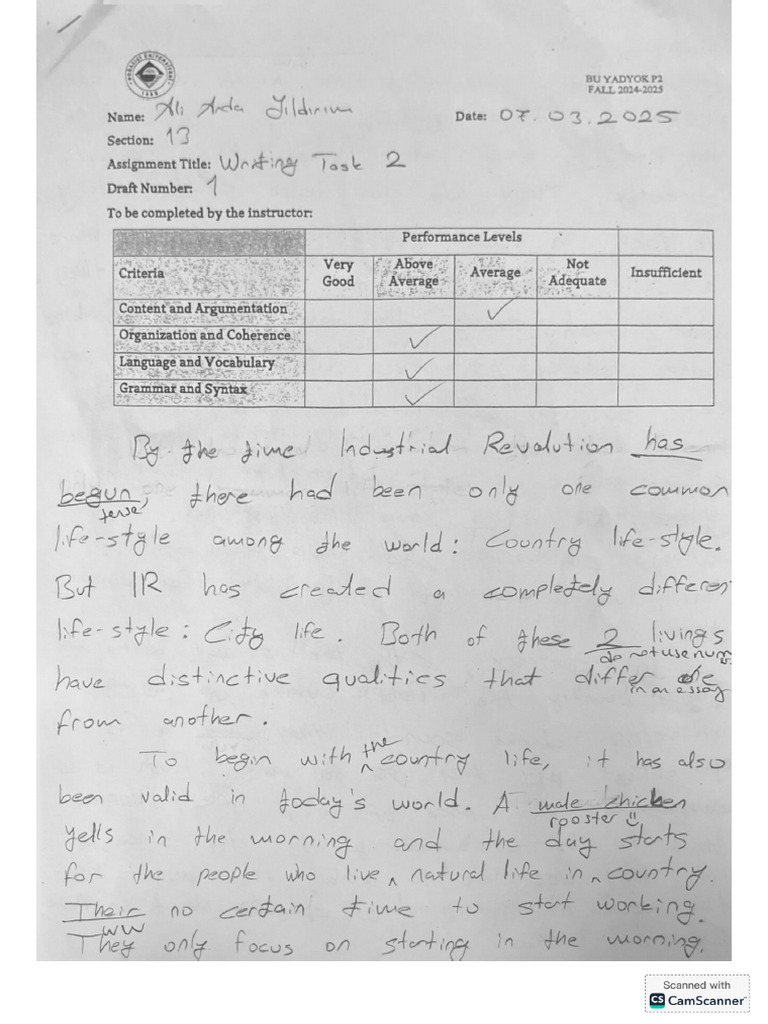 BOĞAZİÇİ ÜNİVERSİTESİ
1863
BU YADYOK P2
FALL 2024-2025
Name: Ali Arda Yıldırım
Date: 07.03.2025
Section: 13
Assignment Title: Writing Task 2
Draft Number: 1
To be completed by the instructor:
Performance Levels
Criteria Very Good Above Average Average Not Adequate Insufficient
Content and Argumentation ✓
Organization and Coherence ✓
Language and Vocabulary ✓
Grammar and Syntax ✓
By the time Industrial Revolution has
begun, there had been only one common
tense
life-style among the world: Country life-style.
But IR has created a completely differen
life-style: City life. Both of these 2 livings
do not use num
have distinctive qualities that differ one
in an essay
from another.
the
To begin with country life, it has also
been valid in today's world. A male chicken
rooster
yells in the morning and the day starts
for the people who live natural life in country.
Their no certain time to start working.
ww
They only focus on starting in the morning.
Scanned with
CS CamScanner